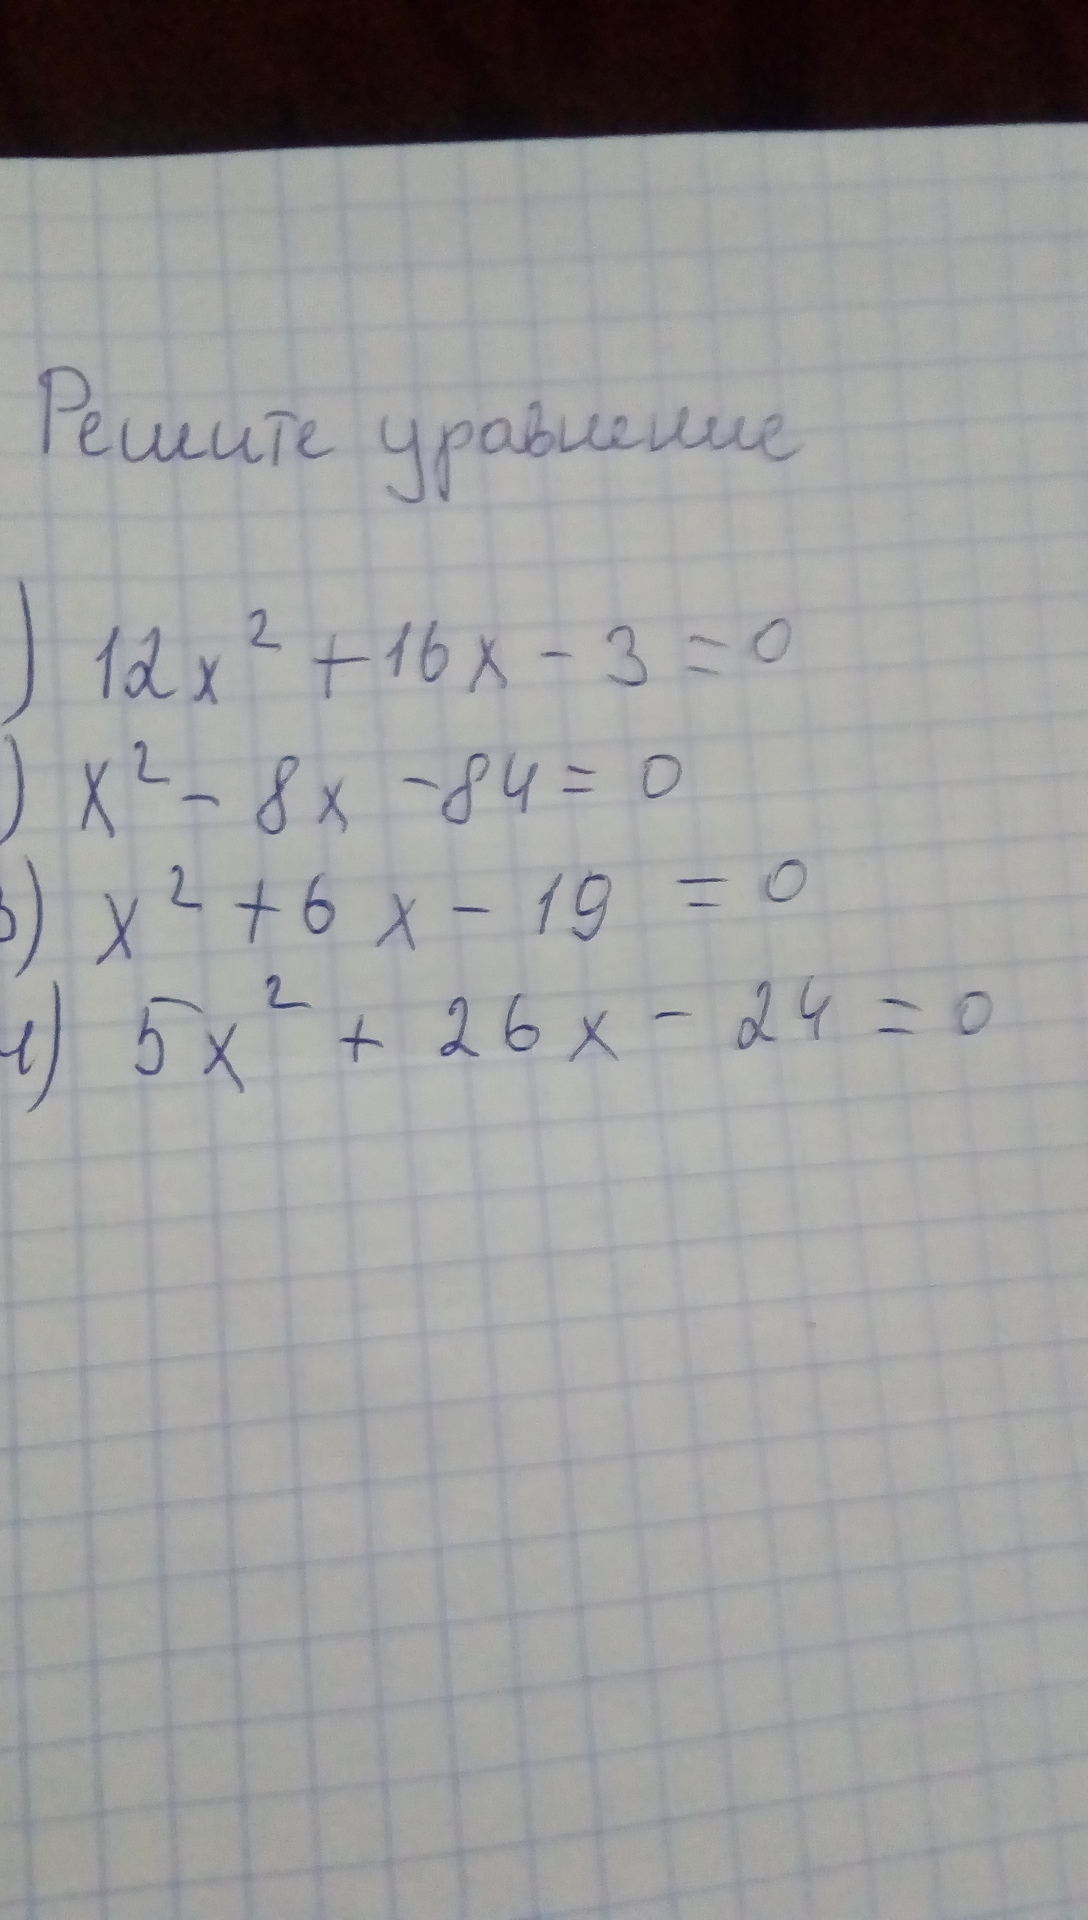 Решите уравнение
) 12x² + 16x - 3 = 0
) x² - 8x - 84 = 0
в) x² + 6x - 19 = 0
) 5x² + 26x - 24 = 0